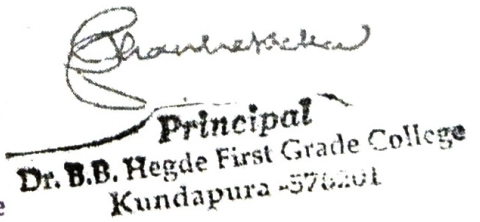 Principal
Dr. B.B. Hegde First Grade College
Kundapura -576201
e